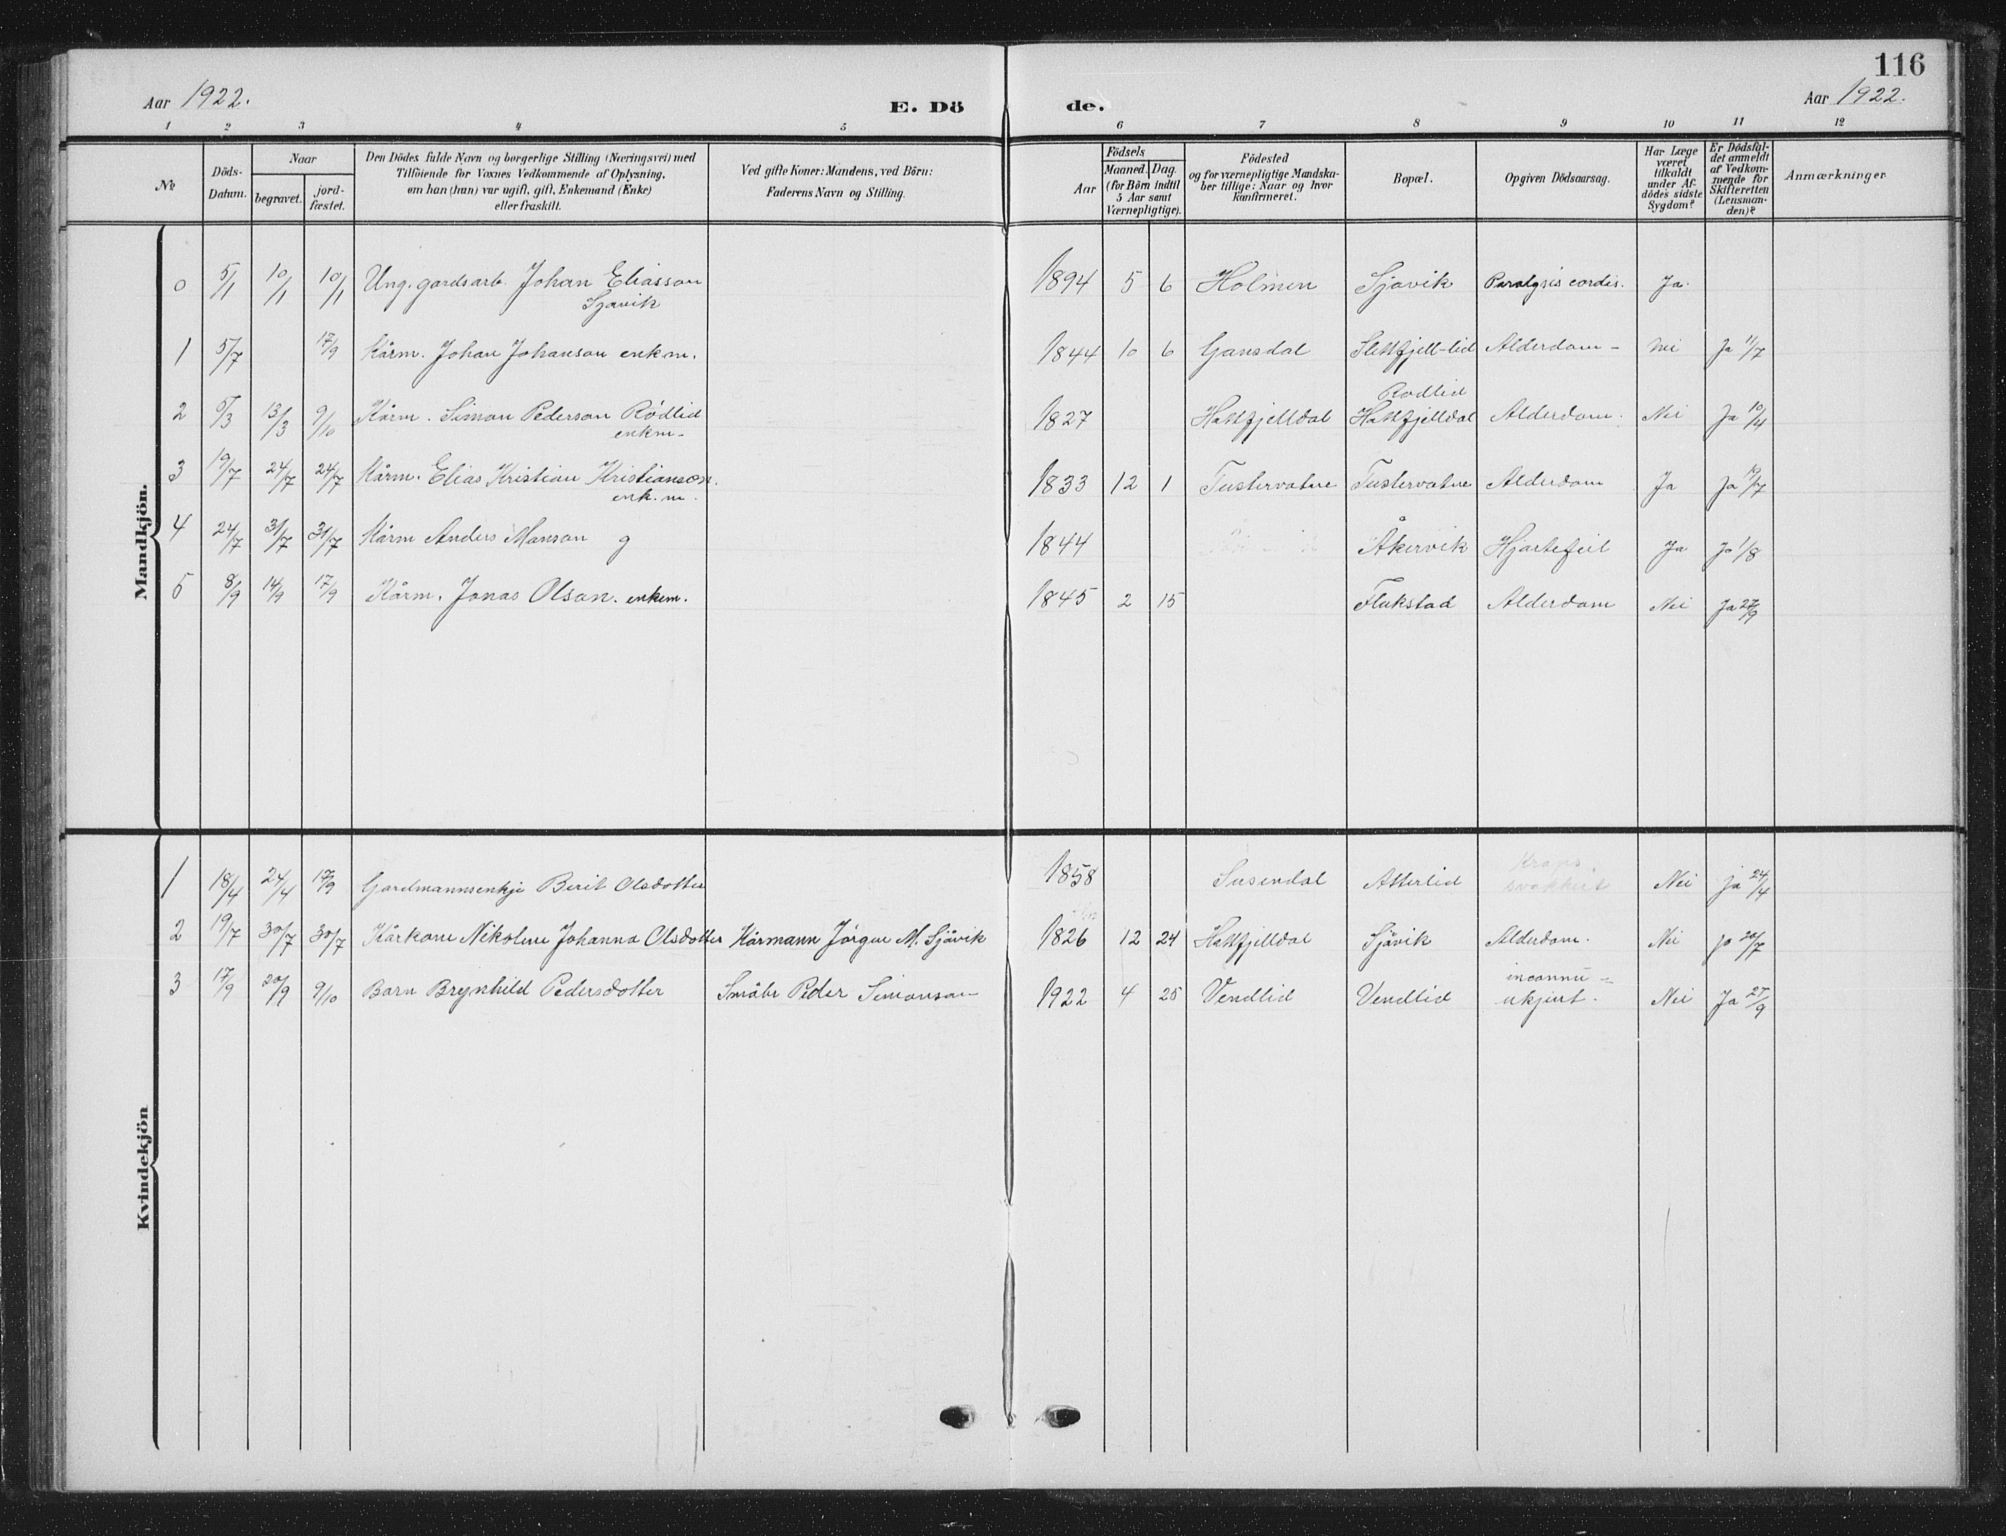 116
Aar 1922.
E. Dö de.
Aar 1922.
1 2 3 4 5 6 7 8 9 10 11 12
No
Döds-Datum.
Naar
begravet.
jord-fæstet.
Den Dödes fulde Navn og borgerlige Stilling (Næringsvei) med
Tilföiende for Voxnes Vedkommende af Oplysning,
om han (hun) var ugift, gift, Enkemand (Enke)
eller fraskilt.
Ved gifte Koner: Mandens, ved Börn:
Faderens Navn og Stilling.
Födsels
Aar
Maaned. Dag.
(for Börn indtil
5 Aar samt
Værnepligtige).
Födested
og for værnepligtige Mandska-
ber tillige: Naar og hvor
konfirmeret.
Bopæl.
Opgiven Dödsaarsag.
Har Læge
været
tilkaldt
under Af-
dödes sidste
Sygdom?
Er Dödsfal-
det anmeldt
af Vedkom-
mende for
Skifteretten
(Lensman-
den)?
Anmærkninger
Mandkjön.
0 5/1 10/1 10/1 Ung. gardsarb. Johan Eliasson 1894 5 6 Holmen Sjavik Paralysis cordis. Ja.
Sjavik
1 5/7 17/9 Kårm. Johan Johanson enkm. 1844 10 6 Gansdal Slettfjell-lid Alderdom - nei Ja 11/7
Rødlid
2 5/3 13/3 9/10 Kårm. Simon Pederson Rødlid 1827 Hattfjelldal Hattfjelldal Alderdom. Nei Ja 10/4
enkm.
3 19/7 24/7 24/7 Kårm. Elias Kristian Kristianson. 1833 12 1 Tustervatne Tustervatne Alderdom Ja Ja 19/7
enk.m.
4 24/7 31/7 31/7 Kårm Anders Monson g 1844 Åkervik Hjartefeil Ja Ja 1/8
5 8/9 14/9 17/9 Kårm. Jonas Olson. enkem. 1845 2 15 Flakstad Alderdom Nei Ja 27/9
Kvindekjön
Kraps
1 18/4 24/4 17/9 Gardmannsenkje Berit Olsdotter 1858 Susendal Atterlid svakheit Nei Ja 24/4
2 19/7 30/7 30/7 Kårkone Nikoline Johanna Olsdotter Kårmann Jørgen M. Sjåvik 1826 12 24 Hattfjelldal Sjåvik Alderdom. Nei Ja 20/7
inconnu =
3 17/9 20/9 9/10 Barn Brynhild Pedersdotter Småbr Peder Simonson 1922 4 25 Vendlid Vendlid ukjent. Nei Ja 27/9